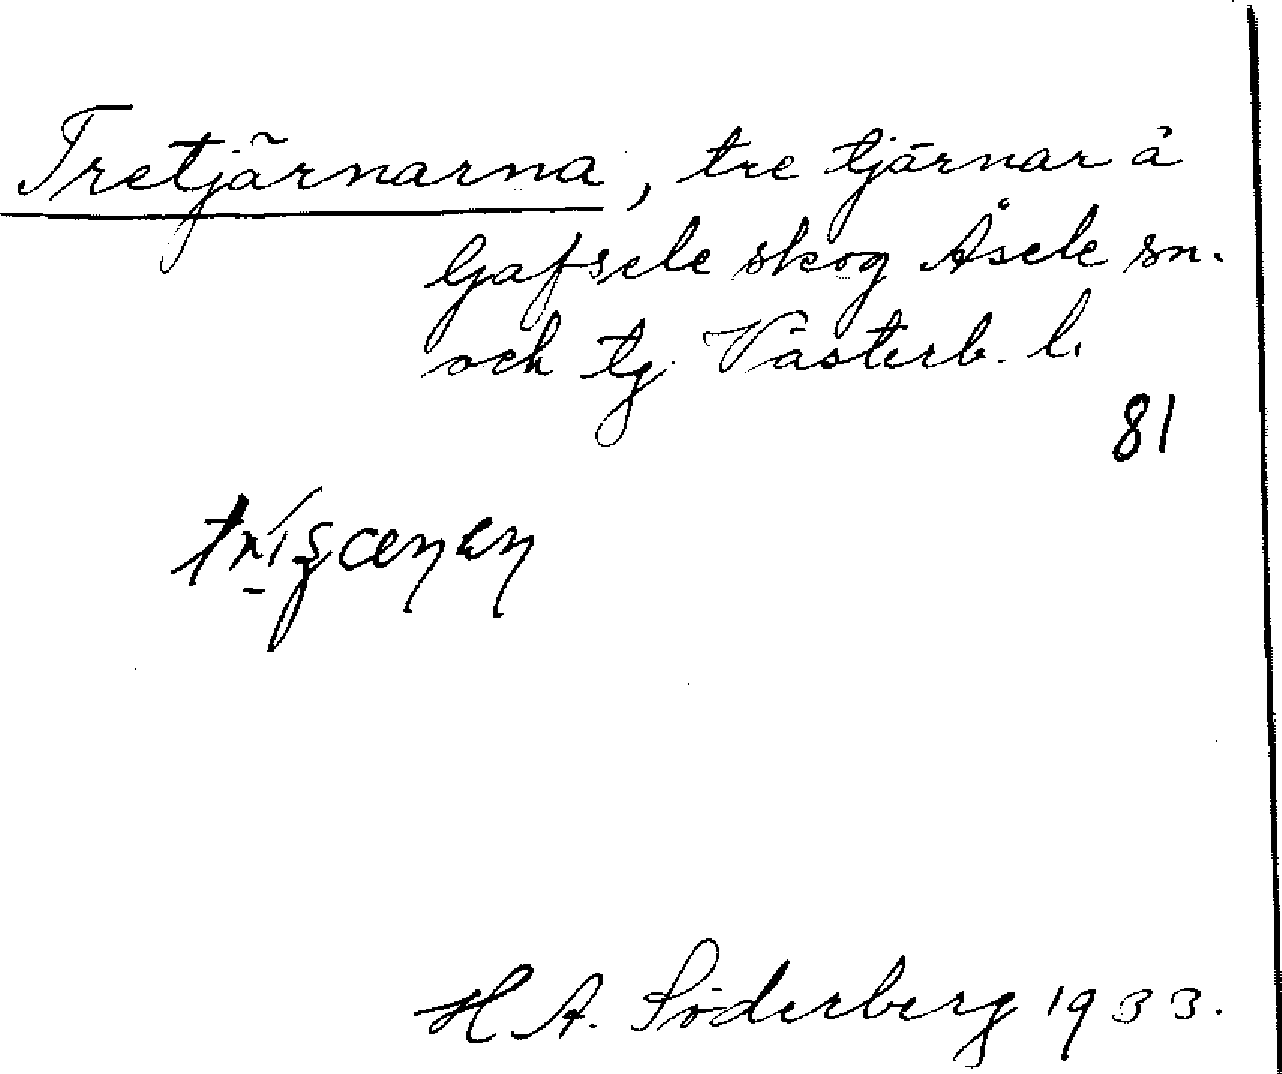 Tretjärnarna, tre tjärnar å
Gafsele skog Åsele sn.
och tg. Västerb. l.
81
H. A. Söderberg 1933.